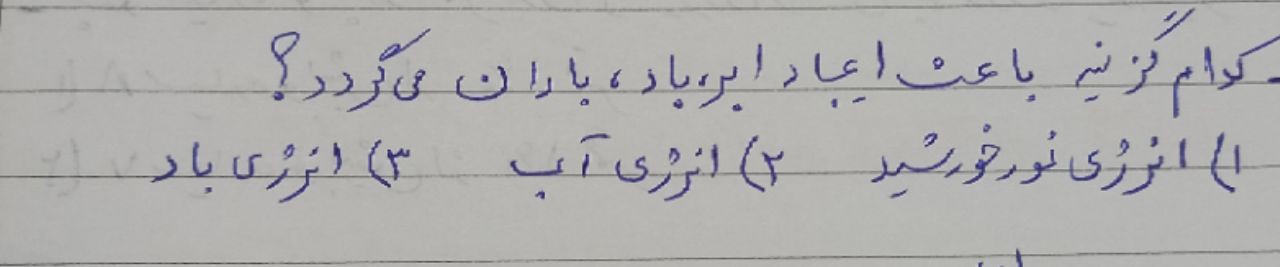 کدام گزینه باعث ایجاد ابر، باد، باران می‌گردد؟
۱) انرژی نور خورشید ۲) انرژی آب ۳) انرژی باد